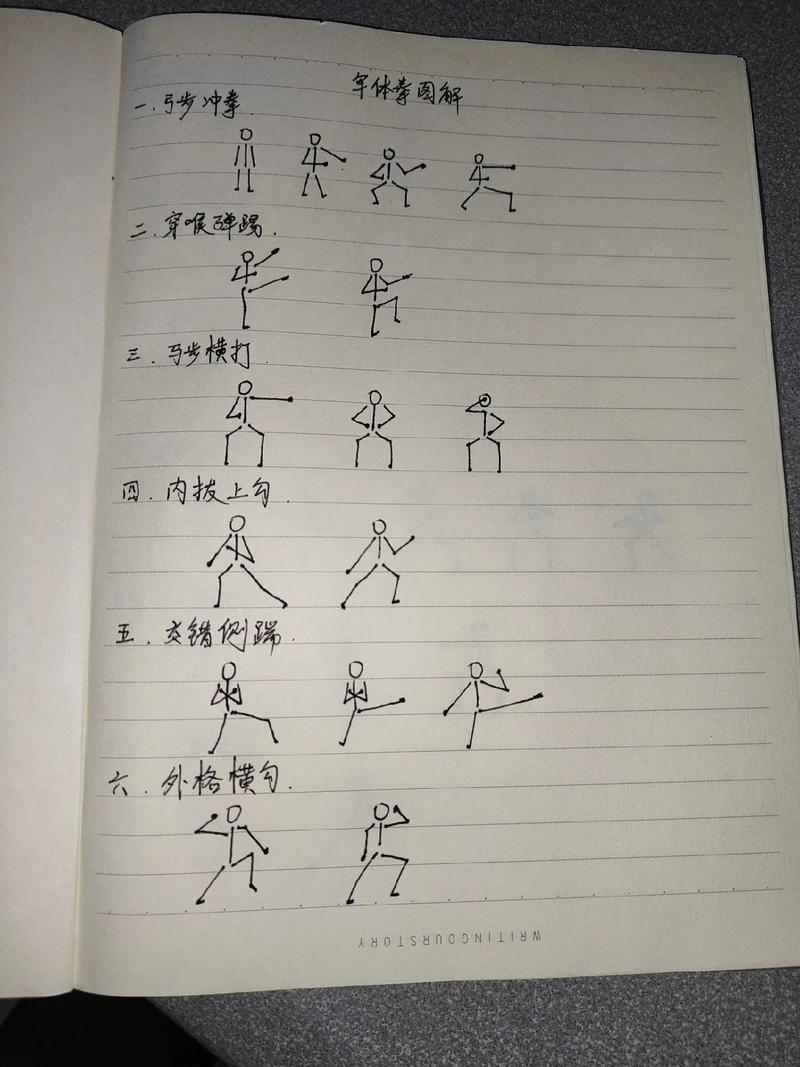 军体拳图解
一.弓步冲拳.
二.穿喉弹踢.
三.马步横打.
四.内拨上勾.
五.交错侧踹.
六.外格横勾.
WRITINGOURSTORY